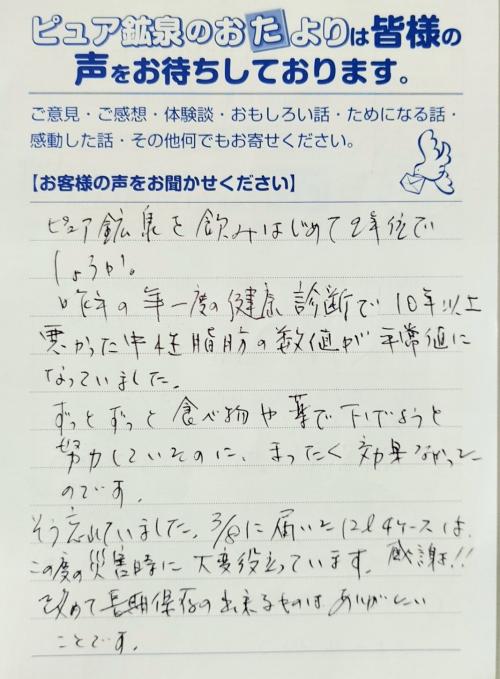 ピュア鉱泉のおたよりは皆様の
声をお待ちしております。
ご意見・ご感想・体験談・おもしろい話・ためになる話・
感動した話・その他何でもお寄せください。
【お客様の声をお聞かせください】
ピュア鉱泉を飲みはじめて2年位で
しょうか。
昨年の年一度の健康診断で10年以上
悪かった中性脂肪の数値が平常値に
なっていました。
ずっとずっと食べ物や薬で下げようと
努力していたのに、まったく効果なかった
のです。
そう忘れていました。3/8に届いた12ℓ4ケースは、
この度の災害時に大変役立っています。感謝!!
改めて長期保存の出来るものはありがたい
ことです。